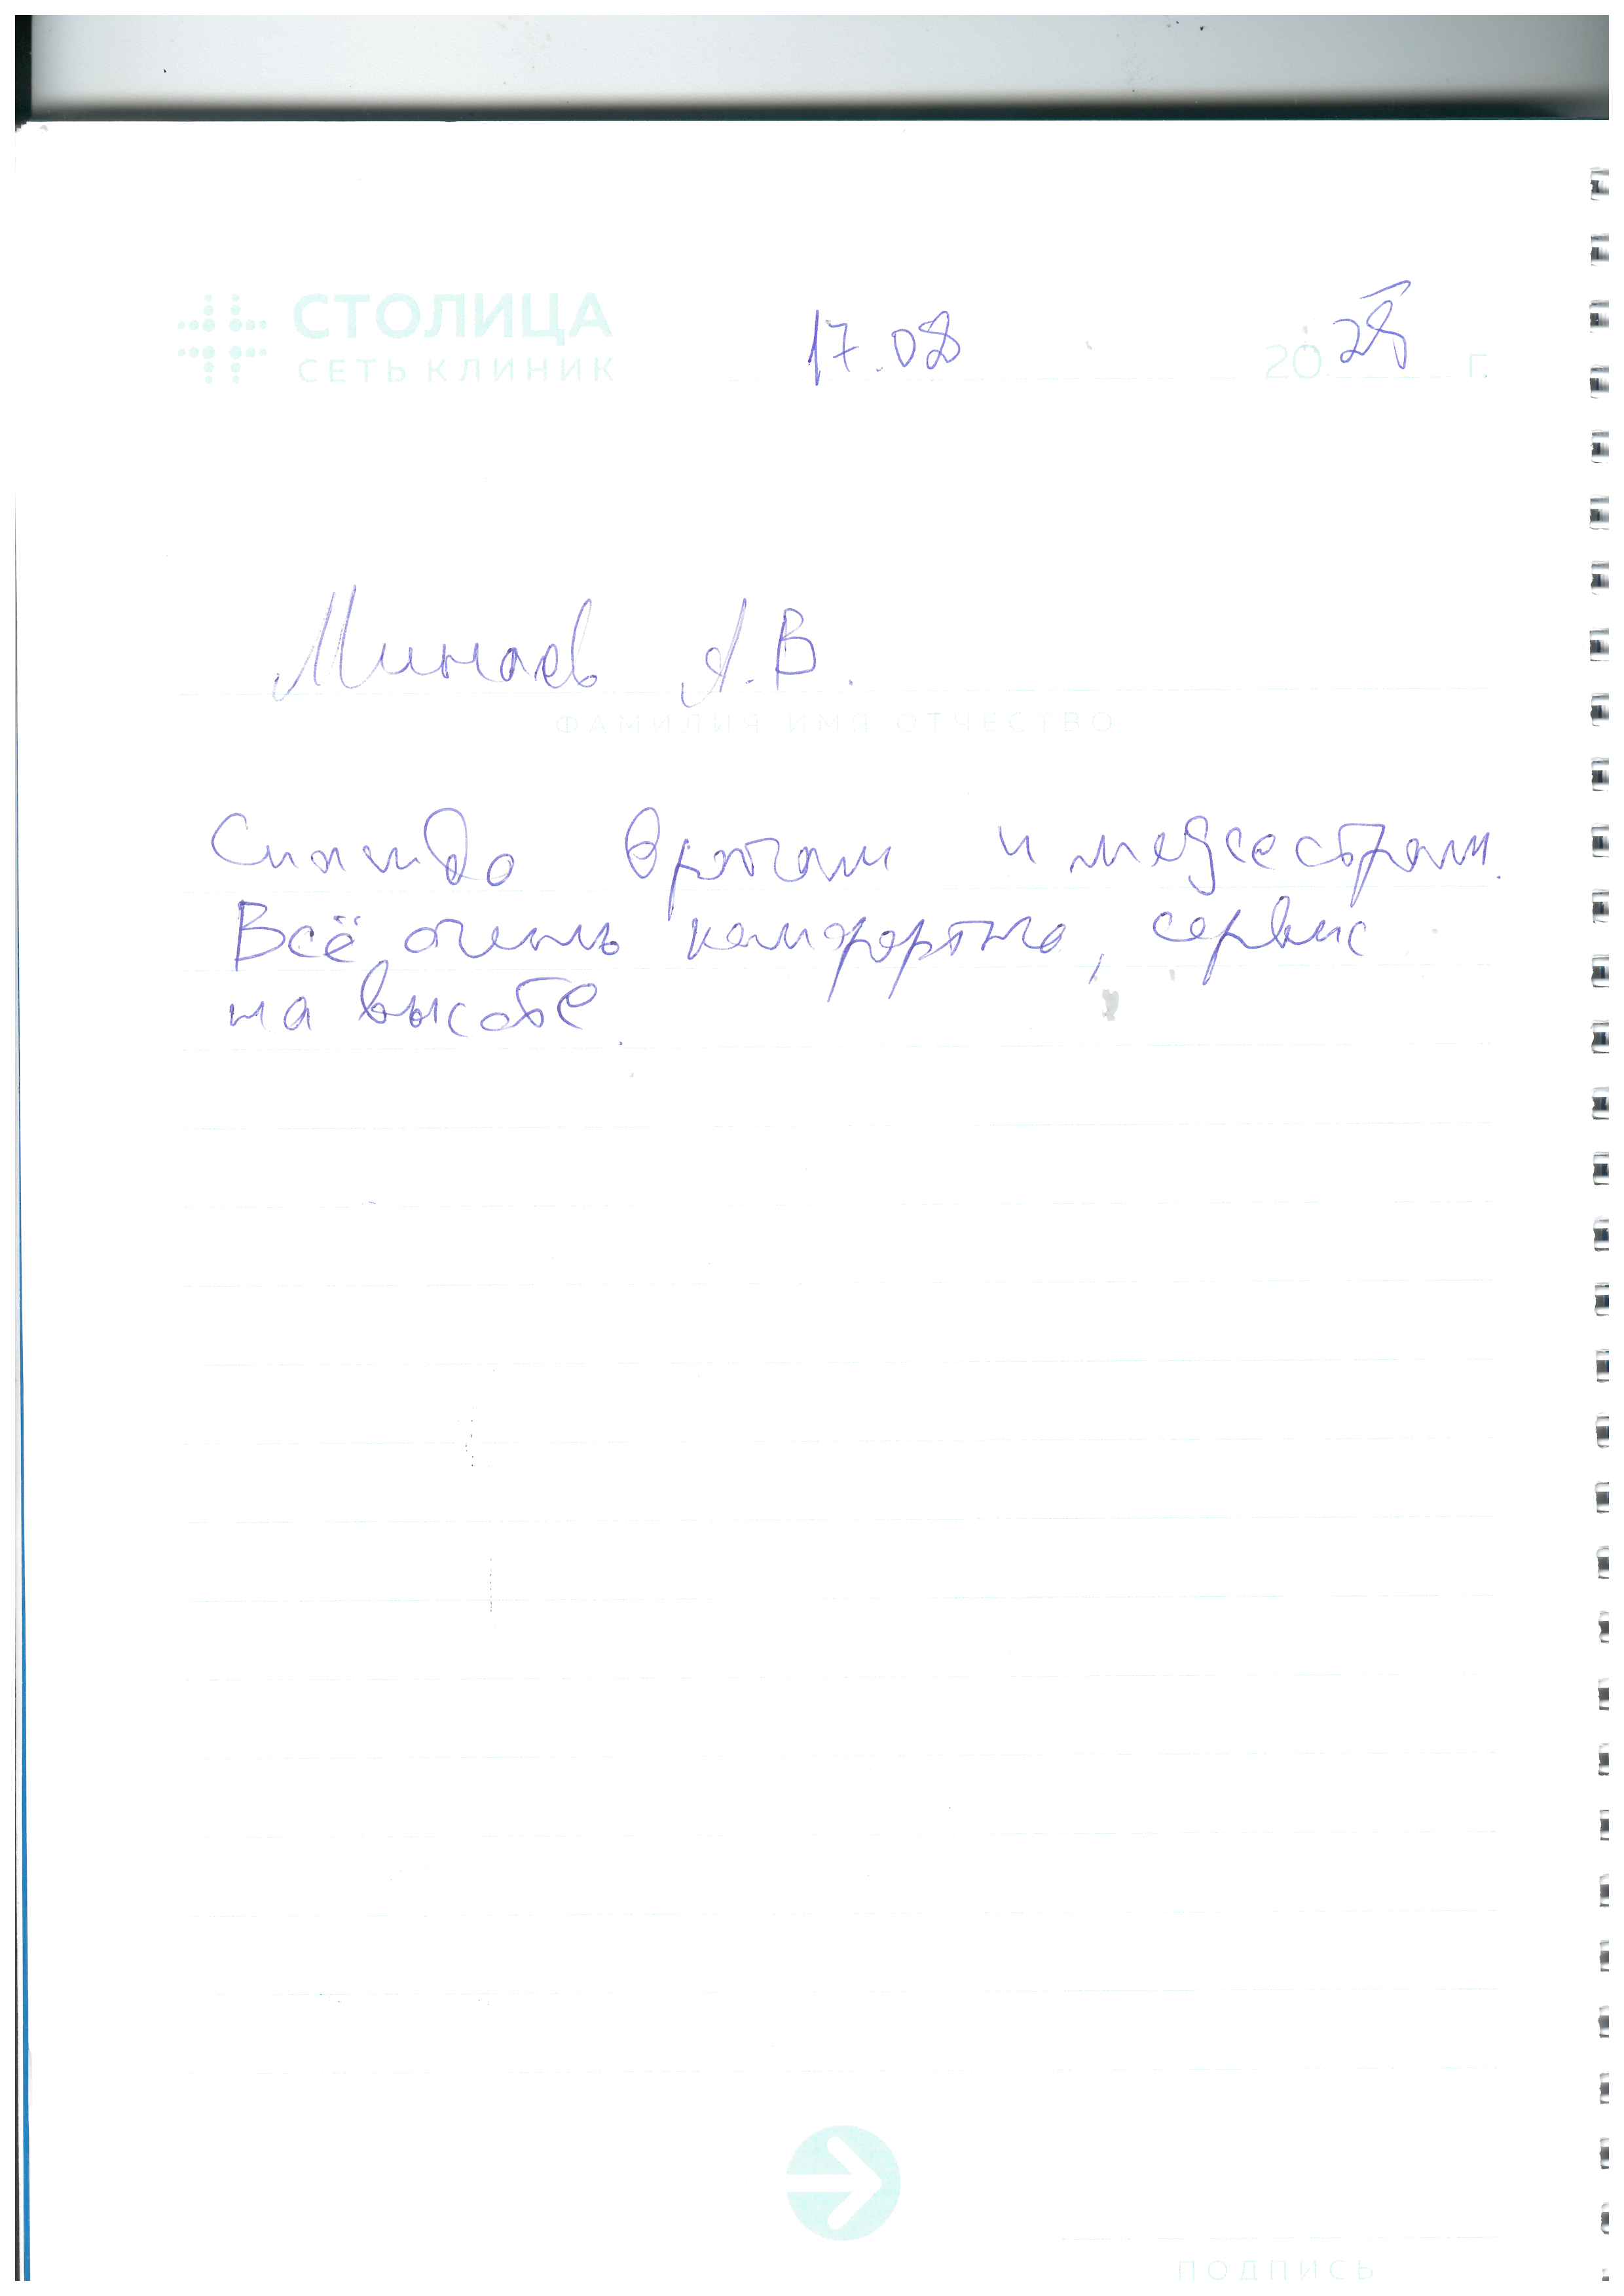 СТОЛИЦА
СЕТЬ КЛИНИК
17.08 2025 г.
Минаев А.В.
ФАМИЛИЯ ИМЯ ОТЧЕСТВО
Спасибо врачам и медсестрам.
Всё очень комфортно, сервис
на высоте.
ПОДПИСЬ